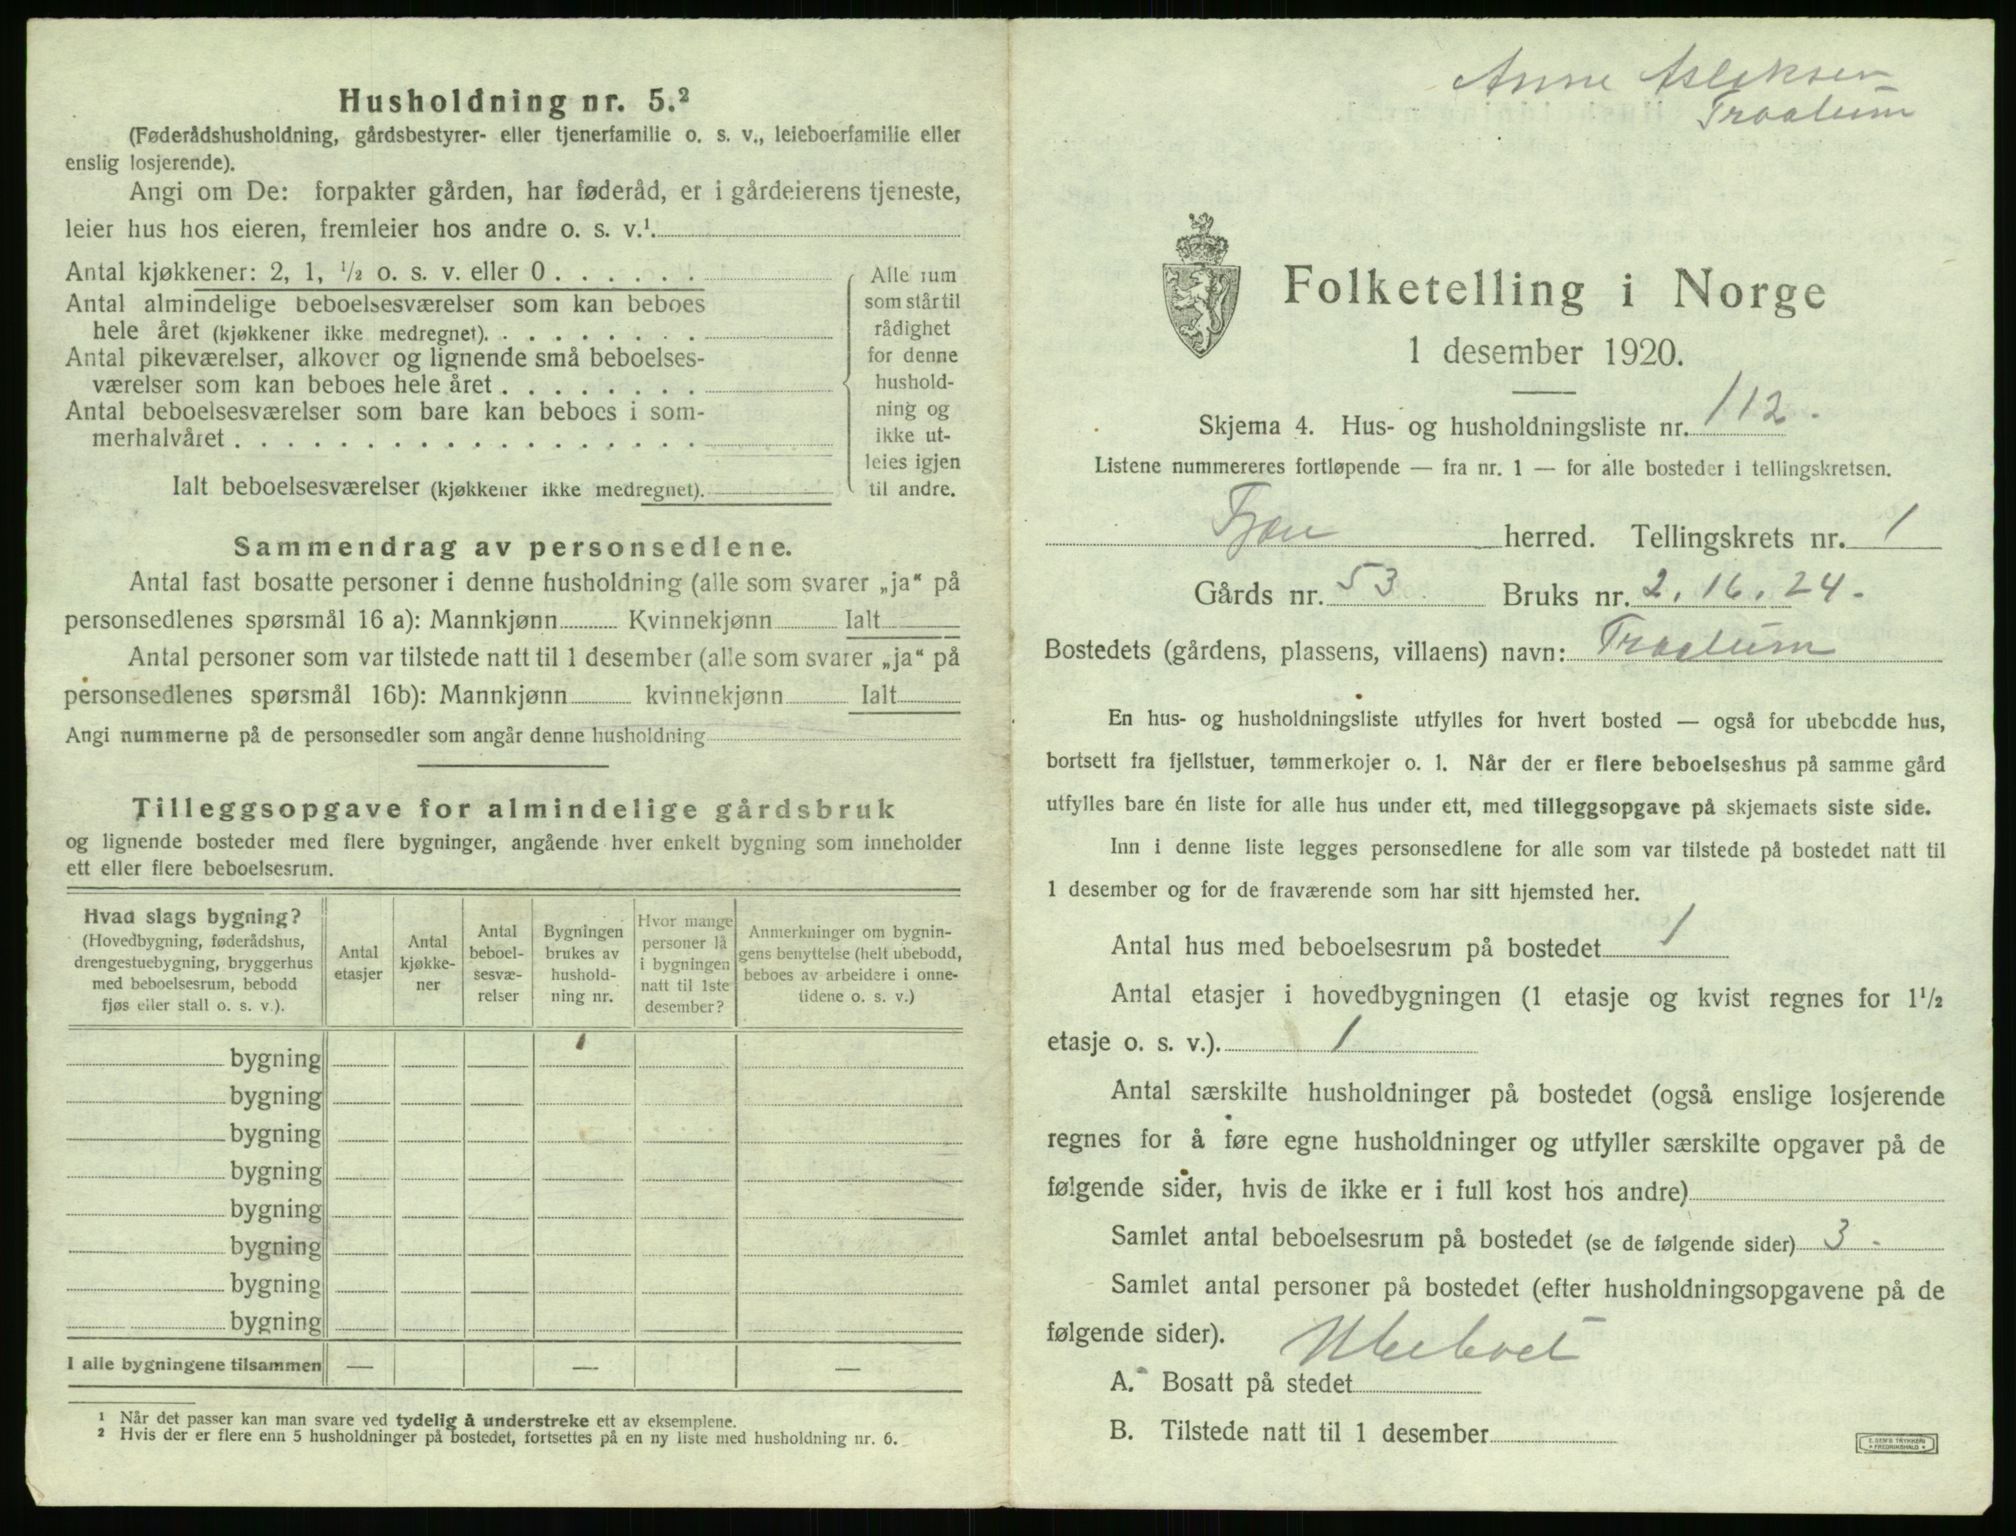 Husholdning nr. 5.²
(Føderådshusholdning, gårdsbestyrer- eller tjenerfamilie o. s. v., leieboerfamilie eller
enslig losjerende).
Angi om De: forpakter gården, har føderåd, er i gårdeierens tjeneste,
leier hus hos eieren, fremleier hos andre o. s. v.¹.
Antal kjøkkener: 2, 1, ½ o. s. v. eller 0 . . . . . .
Antal almindelige beboelsesværelser som kan beboes
hele året (kjøkkener ikke medregnet). . . . . . . . .
Antal pikeværelser, alkover og lignende små beboelses-
værelser som kan beboes hele året . . . . . . . .
Antal beboelsesværelser som bare kan beboes i som-
merhalvåret . . . . . . . . . . . . . . . . . .
Ialt beboelsesværelser (kjøkkener ikke medregnet).
Alle rum
som står til
rådighet
for denne
hushold-
ning og
ikke ut-
leies igjen
til andre.
Sammendrag av personsedlene.
Antal fast bosatte personer i denne husholdning (alle som svarer „ja“ på
personsedlenes spørsmål 16 a): Mannkjønn Kvinnekjønn Ialt
Antal personer som var tilstede natt til 1 desember (alle som svarer „ja“ på
personsedlenes spørsmål 16b): Mannkjønn kvinnekjønn Ialt
Angi nummerne på de personsedler som angår denne husholdning
Tilleggsopgave for almindelige gårdsbruk
og lignende bosteder med flere bygninger, angående hver enkelt bygning som inneholder
ett eller flere beboelsesrum.
Hvad slags bygning?
(Hovedbygning, føderådshus,
drengestuebygning, bryggerhus
med beboelsesrum, bebodd
fjøs eller stall o. s. v.).
Antal
etasjer
Antal
kjøkke-
ner
Antal
beboel-
sesvæ-
relser
Bygningen
brukes av
hushold-
ning nr.
Hvor mange
personer lå
i bygningen
natt til 1ste
desember?
Anmerkninger om bygnin-
gens benyttelse (helt ubebodd,
beboes av arbeidere i onne-
tidene o. s. v.)
bygning
bygning
bygning
bygning
bygning
bygning
bygning
bygning
I alle bygningene tilsammen — — —
¹ Når det passer kan man svare ved tydelig å understreke ett av eksemplene.
² Hvis der er flere enn 5 husholdninger på bostedet, fortsettes på en ny liste med husholdning nr. 6.
Anne Asleksen
Traalum
Folketelling i Norge
1 desember 1920.
Skjema 4. Hus- og husholdningsliste nr. 112.
Listene nummereres fortløpende — fra nr. 1 — for alle bosteder i tellingskretsen.
herred. Tellingskrets nr. 1
Gårds nr. 53 Bruks nr. 2. 16. 24.
Bostedets (gårdens, plassens, villaens) navn: Traalum
En hus- og husholdningsliste utfylles for hvert bosted — også for ubebodde hus,
bortsett fra fjellstuer, tømmerkojer o. l. Når der er flere beboelseshus på samme gård
utfylles bare én liste for alle hus under ett, med tilleggsopgave på skjemaets siste side.
Inn i denne liste legges personsedlene for alle som var tilstede på bostedet natt til
1 desember og for de fraværende som har sitt hjemsted her.
Antal hus med beboelsesrum på bostedet 1
Antal etasjer i hovedbygningen (1 etasje og kvist regnes for 1½
etasje o. s. v.). 1
Antal særskilte husholdninger på bostedet (også enslige losjerende
regnes for å føre egne husholdninger og utfyller særskilte opgaver på de
følgende sider, hvis de ikke er i full kost hos andre)
Samlet antal beboelsesrum på bostedet (se de følgende sider) 3.
Samlet antal personer på bostedet (efter husholdningsopgavene på de
følgende sider).
A. Bosatt på stedet
B. Tilstede natt til 1 desember
E. SEM'S TRYKKERI
FREDRIKSHALD